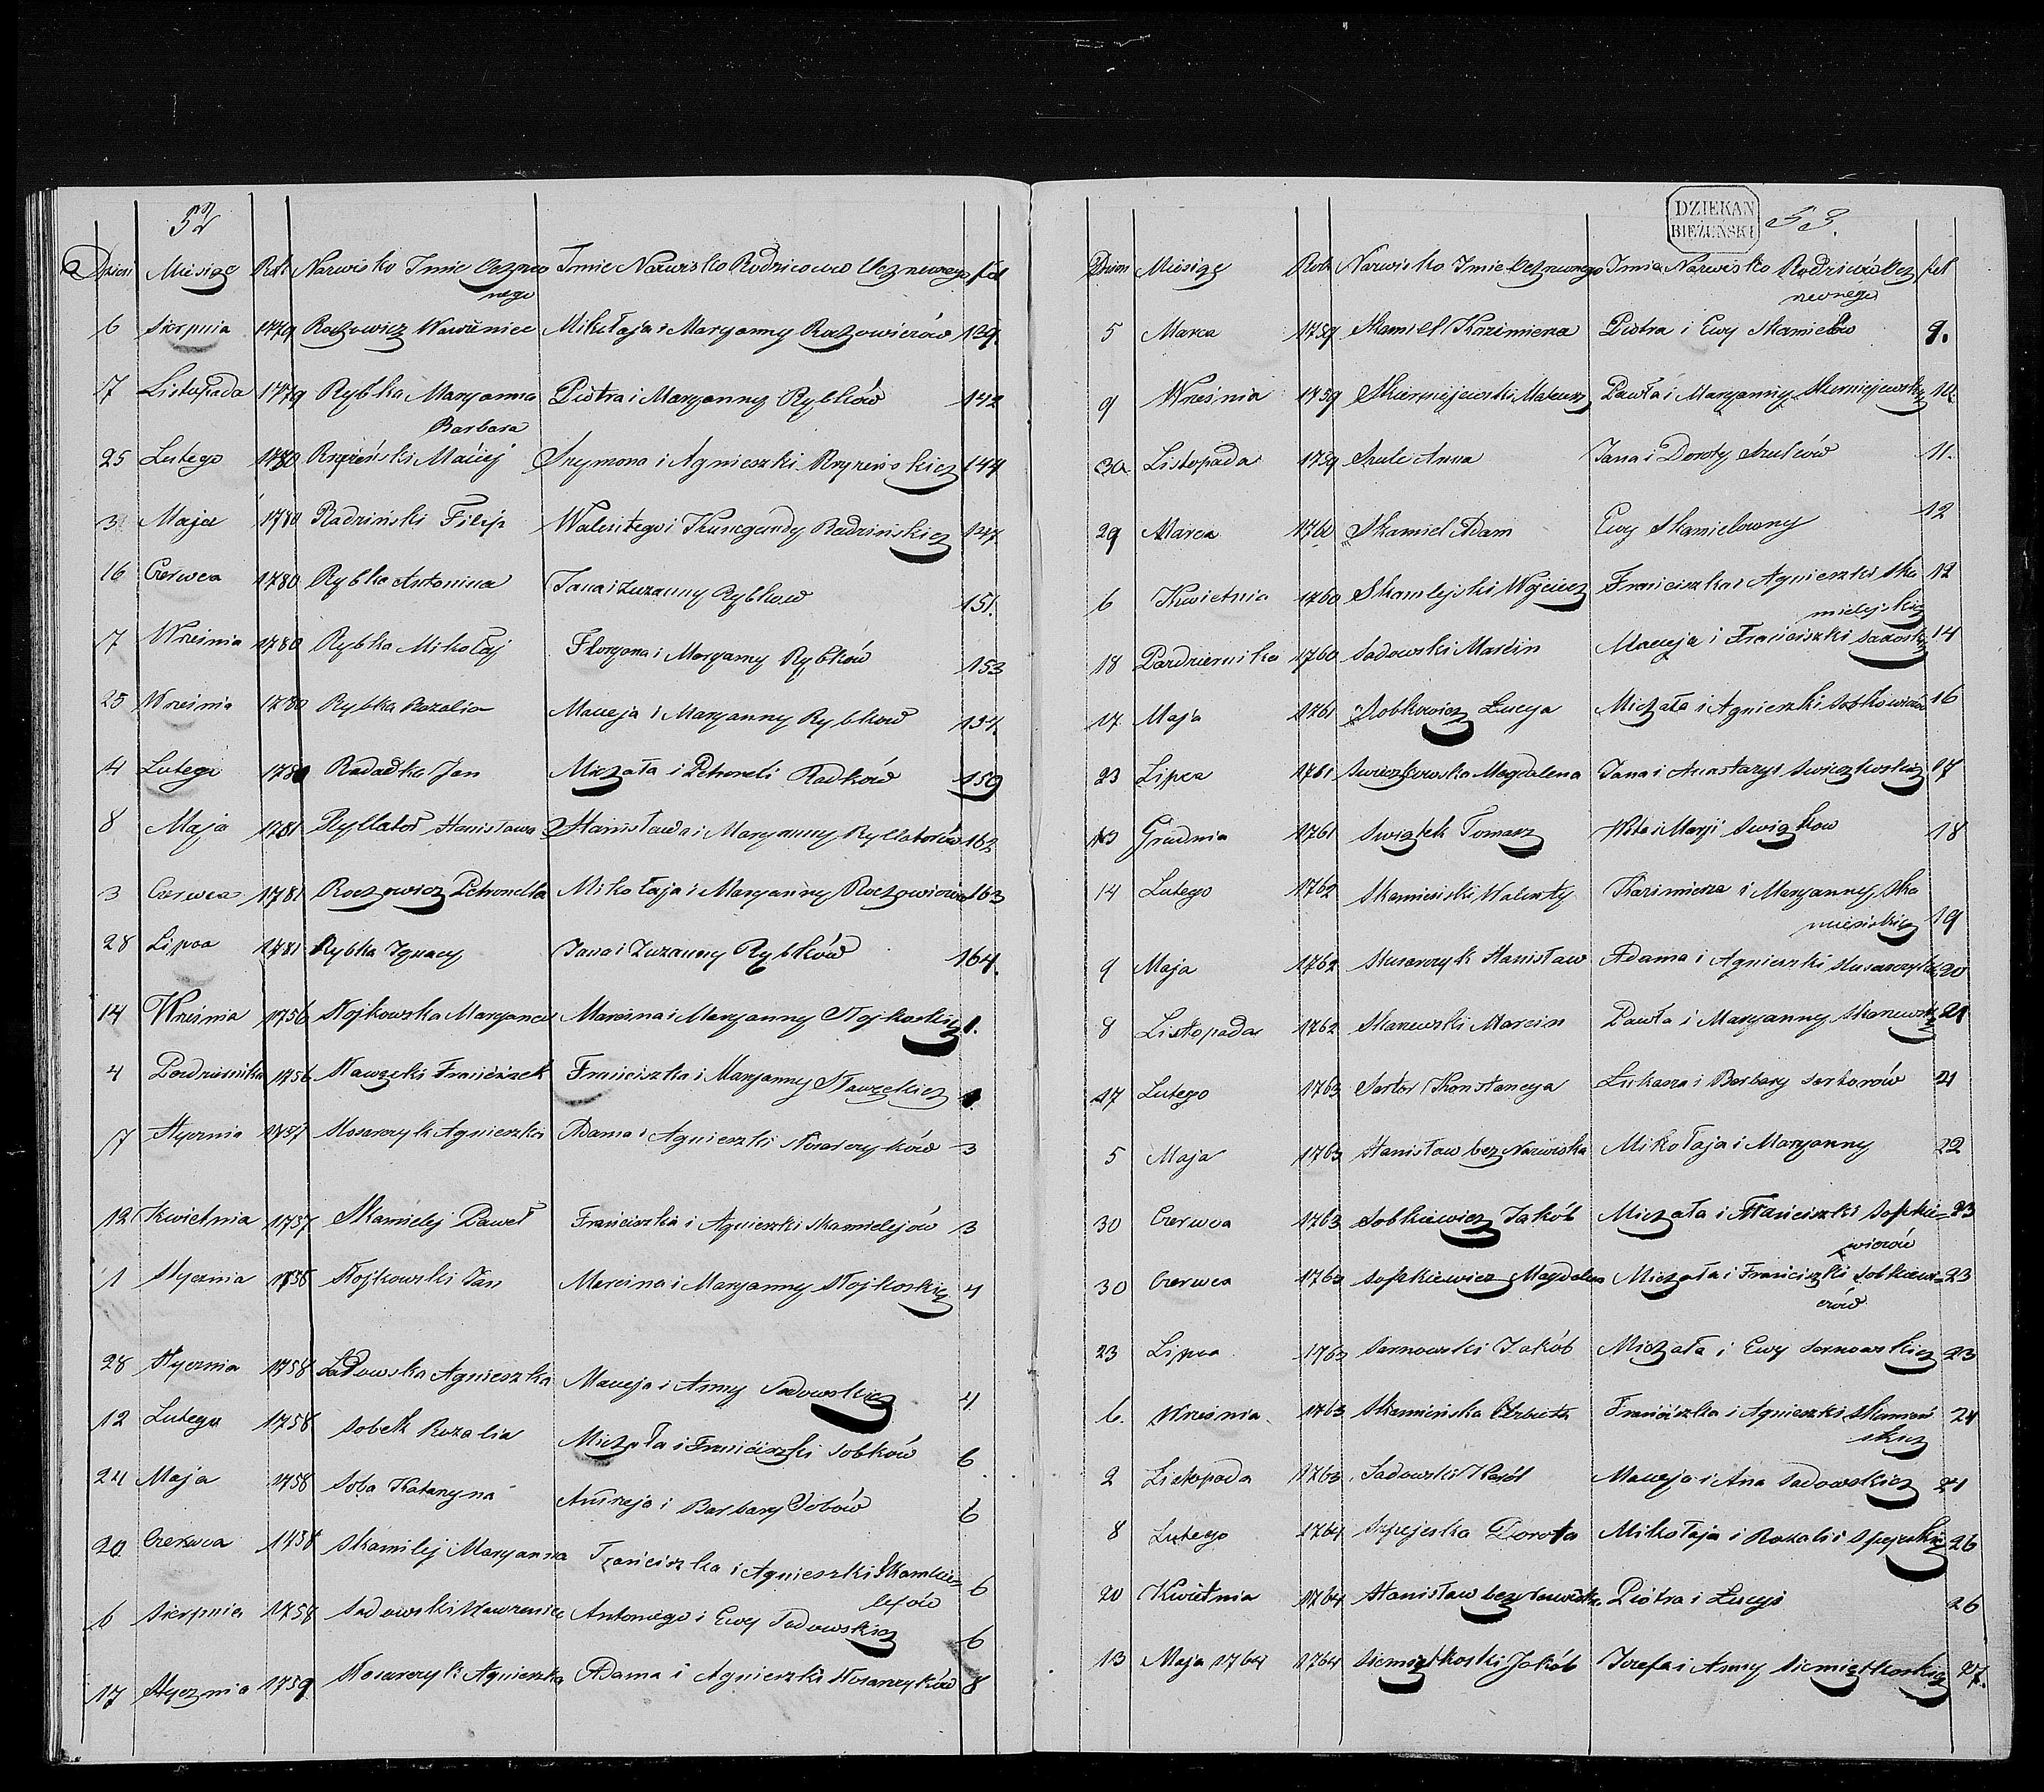 52
Dzień Miesiąc Rok Nazwisko Imie Ochrzczo Imie Nazwisko Rodziców fol
nego
6 Sierpnia 1779 Rochowicz Wawrzeniec Mikołaja i Maryanny Rochowiczów 139.
7 Listopada 1779 Rybka Maryanna Piotra i Maryanny Rybków 142
Barbara
25 Lutego 1780 Maciej Szymona i Agnieszki 144
3 Maja 1780 Radziński Filip Walentego i Kunegundy Radzińskich 147
16 Czerwca 1780 Rybka Antonina Jana i Zuzanny Rybkow 151.
7 Września 1780 Rybka Mikołaj Floryana i Maryanny Rybków 153
25 Września 1780 Rybka Rozalia Macieja i Maryanny Rybkow 154.
4 Lutego Jan Michała i Petroneli Radków 159
8 Maja 1781 Ryllatoł Stanisława Stanisława i Maryanny Ryllatołów 162
3 Czerwca 1781 Rochowicz Petronella Mikołaja i Maryanny Rochowiczów 163
28 Lipca 1781 Rybka Ignacy Jana i Zuzanny Rybków 164.
14 Września 1756 Stojkowska Maryanna Marcina i Maryanny Stojkoskich 1.
4 Pazdziernika 1756 Franciszek Franciszka i Maryanny 1.
7 Stycznia 1757 Agnieszka Adama i Agnieszki 3
12 Kwietnia 1757 Skamielej Paweł Franciszka i Agnieszki Skamielejów 3
1 Stycznia 1758 Stojkowski Jan Marcina i Maryanny Stojkoskich 4
28 Stycznia 1758 Sadowska Agnieszka Macieja i Anny Sadowskich 4
12 Lutego 1758 Sobek Rozalia Michała i Franciszki Sobków 6
24 Maja 1758 Soba Katarzyna Andrzeja i Barbary Sobów 6
20 Czerwca 1758 Skamilej Maryanna Franciszka i Agnieszki Skamie=
lejów 6
6 Sierpnia 1758 Sadowski Wawrzeniec Antoniego i Ewy Sadowskich 6
17 Stycznia 1759 Agnieszka Adama i Agnieszki 8
DZIEKAN
BIEŻUŃSKI
53.
Dzien Miesiąc Rok Nazwisko Imie Imie Nazwisko Rodziców fol
5 Marca 1759 Skamiel Kazimierza Piotra i Ewy Skamielów 9.
9 Września 1759 Skierniejewski Mateusz Pawła i Maryanny 10.
30 Listopada 1759 Szulc Anna Jana i Doroty Szulców 11.
29 Marca 1760 Skamiel Adam Ewy Skamielowny 12
6 Kwietnia 1760 Skamlejski Wojciech Franciszka i Agnieszki Ska 12
mielejskich
18 Pazdziernika 1760 Sadowski Marcin Macieja i Franciszki 14
17 Maja 1761 Sobkowicz Łucya Michała i Agnieszki Sobkowiczów 16
23 Lipca 1761 Swieczkowska Magdalena Jana i Anastazyi Swieczkoskich 17
13 Grudnia 1761 Swiątek Tomasz Wita i Maryi Swiątkow 18
14 Lutego 1762 Walenty Kazimierza i Maryanny Ska
19
9 Maja 1762 Stanisław Adama i Agnieszki 20
8 Listopada 1762 Marcin Pawła i Maryanny 21
17 Lutego 1763 Sartor Konstancya Łukasza i Barbary Sartorów 21
5 Maja 1763 Stanisław bez Nazwiska Mikołaja i Maryanny 22
30 Czerwca 1763 Sobkiewicz Jakób Michała i Franciszki Sobkie= 23
wiczów
30 Czerwca 1763 Sobkiewicz Magdalena Michała i Franciszki Sobkiewi= 23
czów
23 Lipca 1763 Sarnowski Jakób Michała i Ewy Sarnowskich 23
6. Września 1763 Skamieńska Elzbieta Franciszka i Agnieszki Skamień 24
skich
2 Listopada 1763 Sadowski Karól Macieja i Ana Sadowskich 24
8 Lutego 1764 Szpejeska Dorota Mikołaja i Rozalii 26
20 Kwietnia 1764 Stanisław bez nazwiska Piotra i Łucyi 26
13 Maja 1764 1764 Siemiątkoski Jakób Józefa i Anny Siemiątkoskich 27.